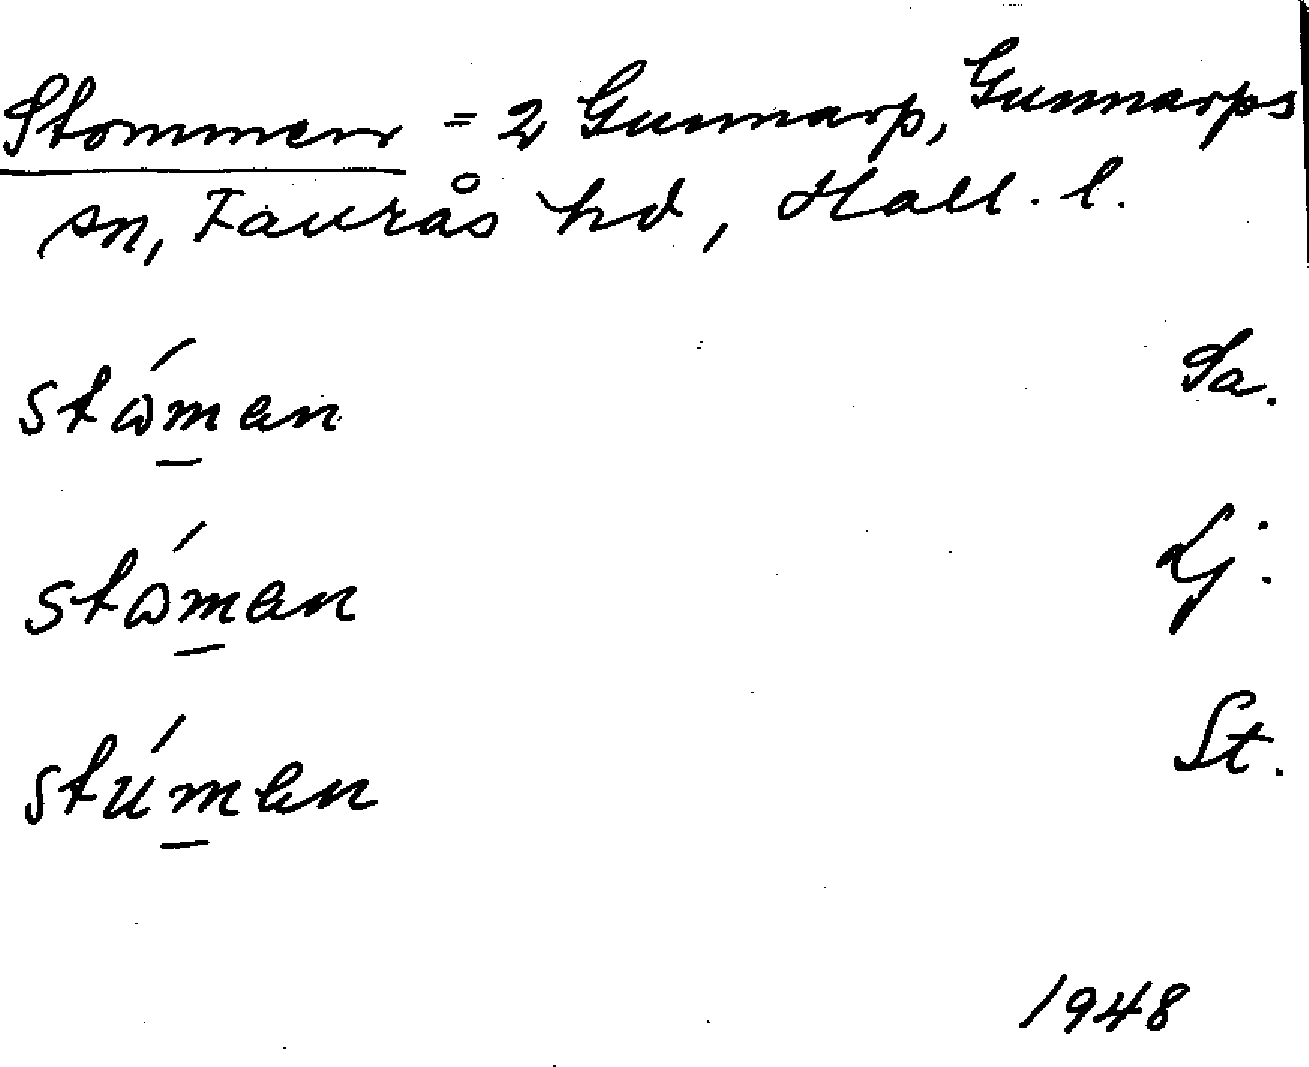 Stommen = 2 Gunnarp, Gunnarps
sn, Faurås hd, Hall. l.
stώm̲en Sa.
stώm̲en Lj.
stúm̲en St.
1948